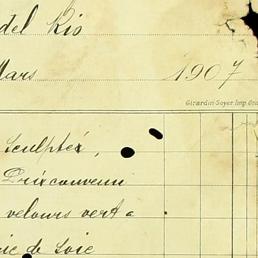 del Rio
Mars 1907
Girardin Soyer Imp.
sculpté,
Prix convenu
velours vert a
de Soie